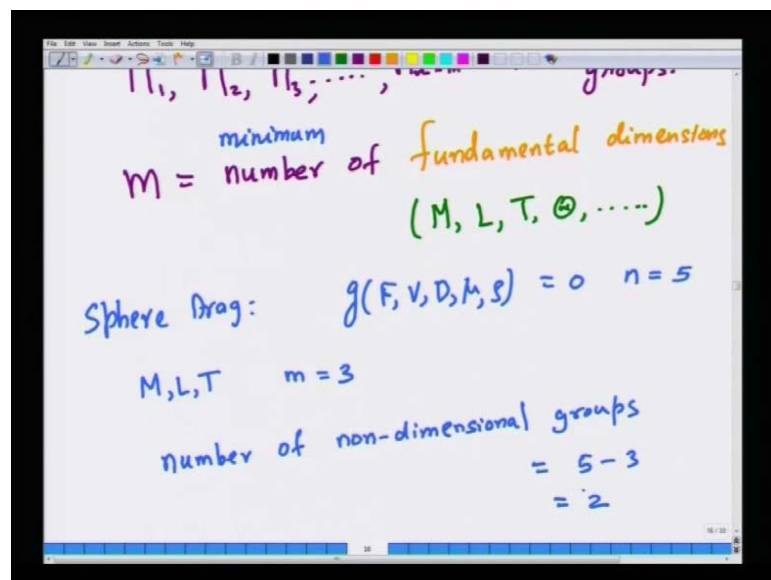 File Edit View Insert Actions Tools Help
Π₁, Π₂, Π₃, ....., groups.
minimum
m = number of fundamental dimensions
(M, L, T, Θ, .....)
Sphere Drag: g(F, V, D, μ, ρ) = 0 n = 5
M, L, T m = 3
number of non-dimensional groups
= 5 - 3
= 2